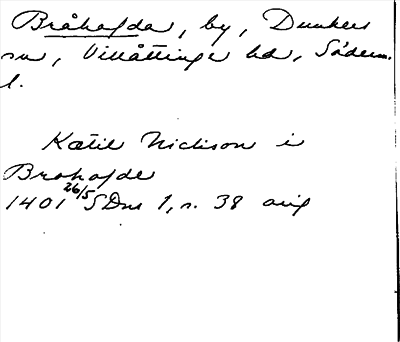 Bråhovda, by, Dunkers
sn, Villåttinge hd, Söderm.
l.
Kætil Niclisson i
Brohofde
1401 26/5 SDns 1, s. 38 orig